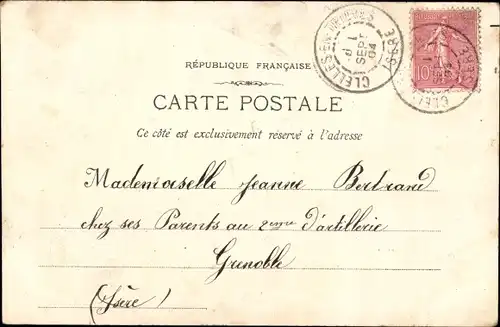 CLELLES-EN-TRIÈVES
1
SEPT
04
ISÈRE
10
RÉPUBLIQUE FRANÇAISE
CARTE POSTALE
Ce côté est exclusivement réservé à l'adresse
Mademoiselle Jeanne Bertrand
chez ses Parents au 2ème d'artillerie
Grenoble
(Isère)